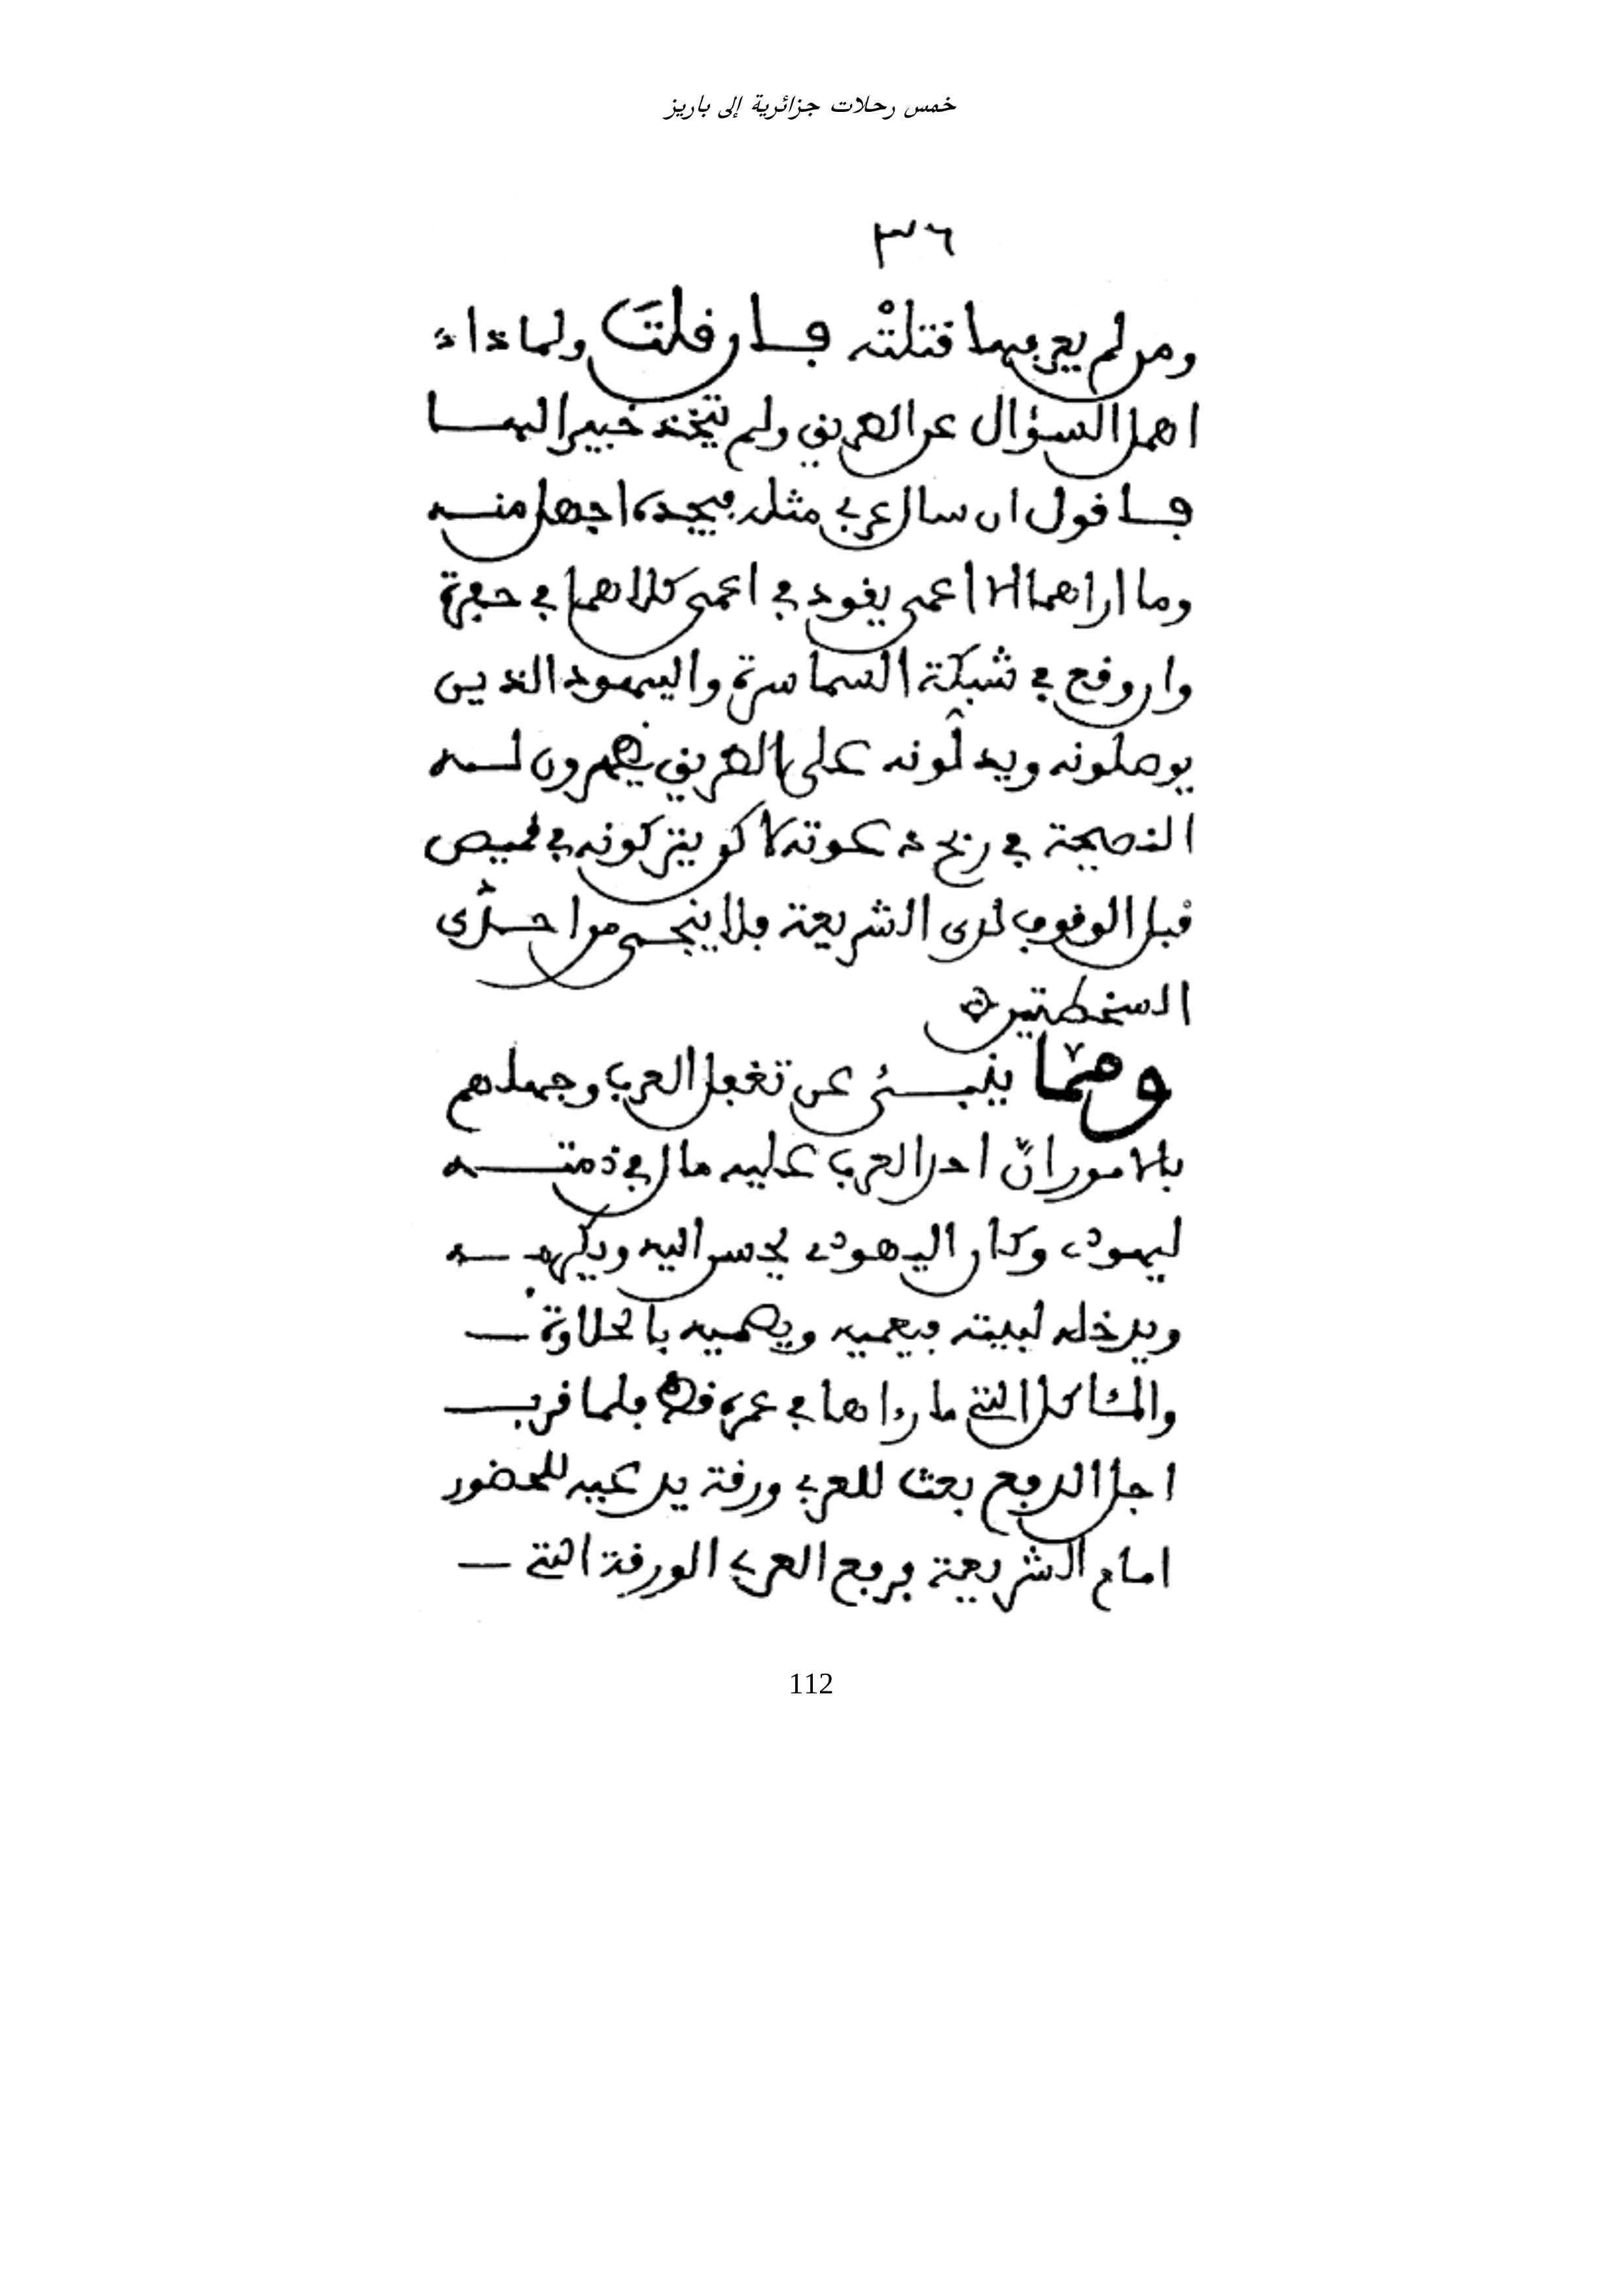 خمس رحلات جزائرية إلى باريز
٣٦
ومن لم يعرفها قتلتْه فـان قلتَ ولماذا
اهمل السؤال عن الطريق ولم يتخذ خبيرا اليها
فـاقول ان سال عربي مثله فيجده اجهل منـه
وما اراهما الا اعمى يقود في اعمى كلاهما في حفرة
وان وقع في شبكة السماسرة واليهود الذين
يوصلونه ويدلّونه على الطريق يظهرون لـه
النصيحة في ربح دعوته لاكن يتركونه في قميص
قبل الوقوف لدى الشريعة فلا ينجـى من احدى
السخطتين
ومما ينبـئ عن تغفل العرب وجهلهم
بالامور انّ احد العرب عليه مال في ذمتـه
ليهودي وكان اليهودي يحسن اليه ويكرمـه
ويدخله لبيته فيعميه ويصميه بالحلاوة
والمشاكل التي ما رءاها في عمره قط فلما قرب
اجل الدفع بعث للعربي ورقة يدعيه للحضور
امام الشريعة فرفع العربي الورقة التي
112